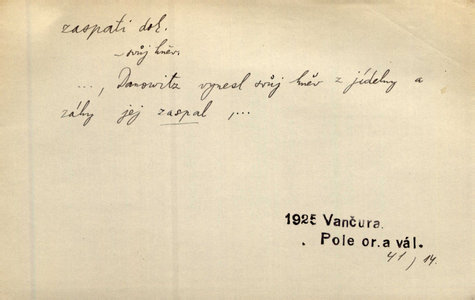 zaspati dok.
~ svůj hněv.
..., Danowitz vynesl svůj hněv z jídelny a
záhy jej zaspal,...
1925 Vančura.
Pole or. a vál.
41, 14.